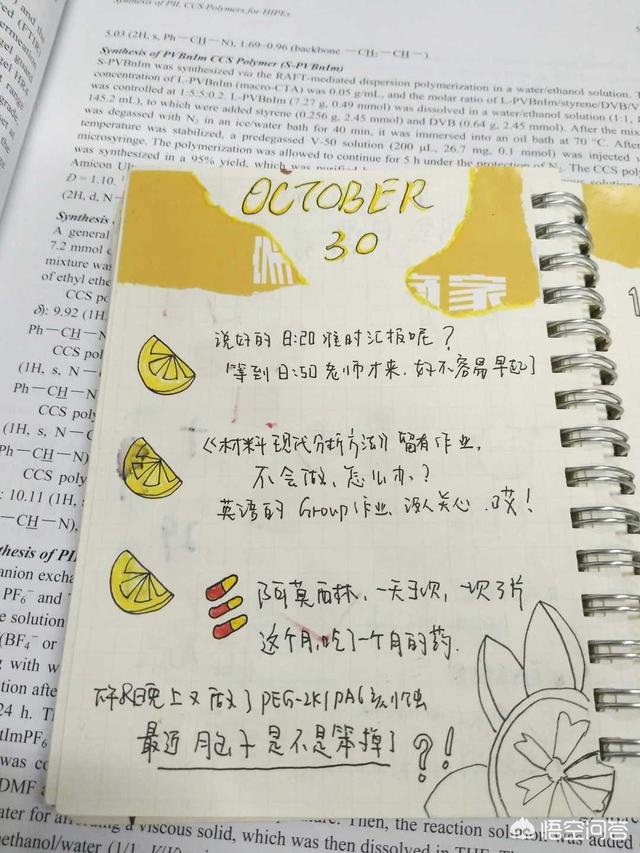 Synthesis of PIL CCS Polymers for HIPEs
5.03 (2H, s, Ph—CH—N), 1.69–0.96 (backbone —CH2—CH—)
Synthesis of PVBnIm CCS Polymer (S-PVBnIm)
S-PVBnIm was synthesized via the RAFT-mediated dispersion polymerization in a water/ethanol solution. T
concentration of L-PVBnIm (macro-CTA) was 0.05 g/mL, and the molar ratio of L-PVBnIm/styrene/DVB/V
was controlled at 1:5:5:0.2. L-PVBnIm (7.27 g, 0.49 mmol) was dissolved in a water/ethanol solution (1:1,
145.2 mL), to which were added styrene (0.256 g, 2.45 mmol) and DVB (0.64 g, 2.45 mmol). After the mi
was degassed with N2 in an ice/water bath for 40 min, it was immersed into an oil bath at 70 °C. After
temperature was stabilized, a predegassed V-50 solution (200 μL, 26.7 mg, 0.1 mmol) was injected
microsyringe. The polymerization was allowed to continue for 5 h under the protection of N2. The CCS
was synthesized in a 95% yield, which was
Amicon Ul
Đ = 1.10.
(2H, d, N–
Synthesis
A general
7.2 mmol
mixture was
of ethyl ethe
CCS po
δ): 9.92 (1H
Ph—CH—N
CCS pol
(1H, s, N—
Ph—CH—N
CCS poly
(1H, s, N—C
CCS poly
: 10.11 (1H,
s, Ph—CH—N),
thesis of PI
anion exchan
OCTOBER
30
家
说好的 8:20 准时汇报呢？
等到 8:50 老师才来，好不容易早起了
《材料现代分析方法》留有作业，
不会做，怎么办？
英语的 Group 作业 没人关心，哎！
阿莫西林，一天3次，一次3片
这个月，吃了一个月的药.
晚上又做了 PEG-2K/PA6
最近 脑子是不是笨掉了？！
24 h. T
tImPF6
was co
DMF a
ater for a
a viscous solid, which was then dissolved in THF.
Then, the reaction
ethanol/water (1/1
was added
悟空问答